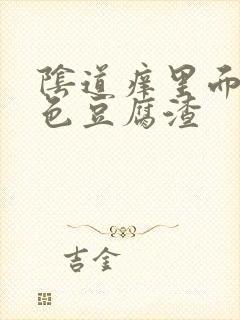 陰道痒里而
色豆腐渣
吉金